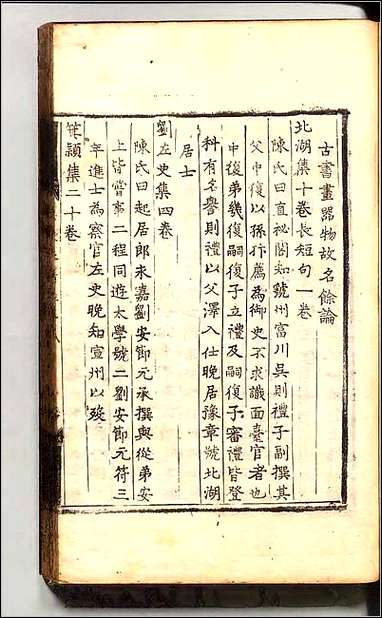 古書畫器物故名餘論
北湖集十卷長短句一卷
陳氏曰直祕閣知虢州富川吳則禮子副撰其
父中復以孫抃薦為御史不求識面臺官者也
中復弟幾復嗣復子立禮及嗣復子審禮皆登
科有名譽則禮以父澤入仕晚居豫章號北湖
居士
劉左史集四卷
陳氏曰起居郎永嘉劉安節元承撰與從弟安
上皆嘗事二程同遊太學號二劉安節元符三
年進士為察官左史晚知宣州以歿
箕潁集二十卷